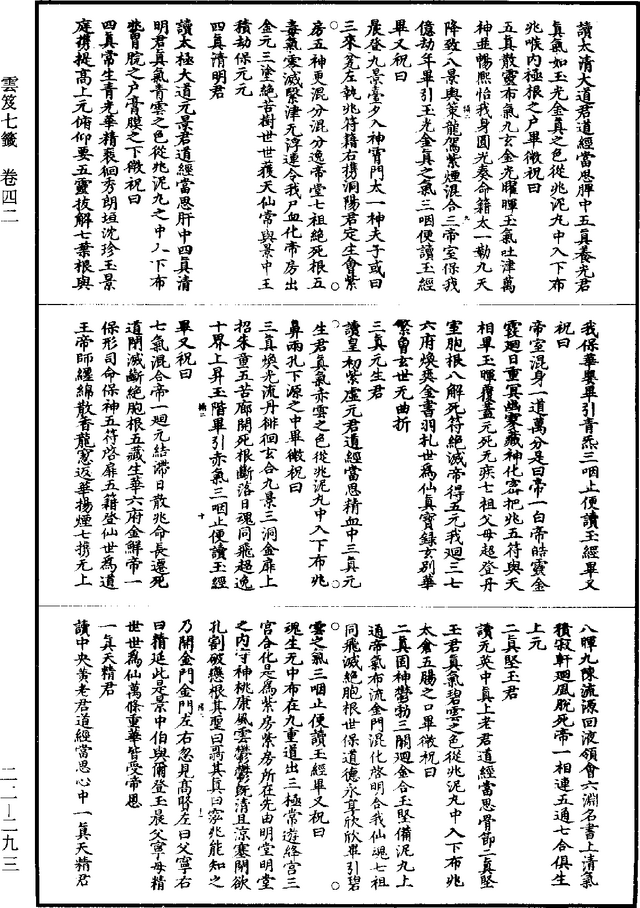 讀太清大道君道經當思脾中五真養光君
真氣如玉光金真之色從兆泥丸中入下布
兆喉内極根之户畢微祝曰
五真散靈布氣九玄金光曜暉玉氣吐津萬
神並暢熙怡我身圓光奏命籍太一勒九天
降致八景輿策龍駕紫煙混合三帝室保我
億劫年畢引玉光金真之氣三咽便讀玉經
畢又祝曰
晨登九景臺夕入神霄門太一神夫子或曰
三來㝹左執兆符籍右携洞陽君定生會紫
房五神更混分混分逸帝堂七祖絕死根五
毒氣零滅繫津元浮連合我尸血化帝房出
金元三塗絕苦樹世世獲天仙常與景中王
積劫保元元
四真清明君
讀太極大道元景君道經當思肝中四真清
明君真氣青雲之色從兆泥丸之中入下布
兆胃脘之户膏膜之下微祝曰
四真常生青光華精裵徊秀朗垣沈珍玉景
庭携提高上元俯仰要五靈拔解七葉根與
我保華嬰畢引青炁三咽止便讀玉經畢又
祝曰
帝室混身一道萬分是曰帝一白帝皓靈金
霞廻日重冥幽寥藏神化密把兆五符與天
相畢玉暉覆蓋元死无疾七祖父母超登丹
室胞根八解死符絕滅帝得五元我迴三七
六府煥爽金書羽札世為仙真寶録玄别華
繁曾玄世无曲折
三真元生君
讀皇初紫虛元君道經當思精血中三真元
生君真氣赤雲之色從兆泥丸中入下布兆
鼻兩孔下源之中畢微祝曰
三真煥光流丹徘徊玄合九景三洞金扉上
招朱童五苦廊開死根斷落日魂同飛超逸
十界上昇玉階畢引赤氣三咽止便讀玉經
畢又祝曰
七氣混合帝一迴元結滯日散兆命長還死
道閉滅斷絕胞根五藏生華六府金鮮帝一
保形司命保神五符啓扉五籍登仙世為道
王帝師纒綿散香龍憲返華揚煙七携无上
八暉九陳流源回液領會六淵名書上清氣
積寂軒廻風脫死帝一相連五通七合俱生
上元
二真堅玉君
讀元英中真上老君道經當思骨節二真堅
玉君真氣碧雲之色從兆泥丸中入下布兆
太倉五腸之口畢微祝曰
二真固神欝勃三關廻金合玉堅備泥丸上
通帝氣布流金門混化啓明合我仙魂七祖
同飛滅絕胞根世保道德永享欣欣畢引碧
雲之氣三咽止便讀玉經畢又祝曰
魂生无中布在九重道出三極常遊絳宫三
宫合化是為紫房紫房所在先由明堂明堂
之内守神桃康風雲鬱鬱既清且涼塞閉欲
孔割破戀根其聖曰㖿其真曰寥兆能知之
乃開金門金門左右忽見高賢左曰父寧右
曰精延此是景中伯與爾登玉晨父寧母精
世世為仙萬條重華皆受帝恩
一真天精君
讀中央黄老君道經當思心中一真天精君
雲笈七籤 卷四二
二二—二九三